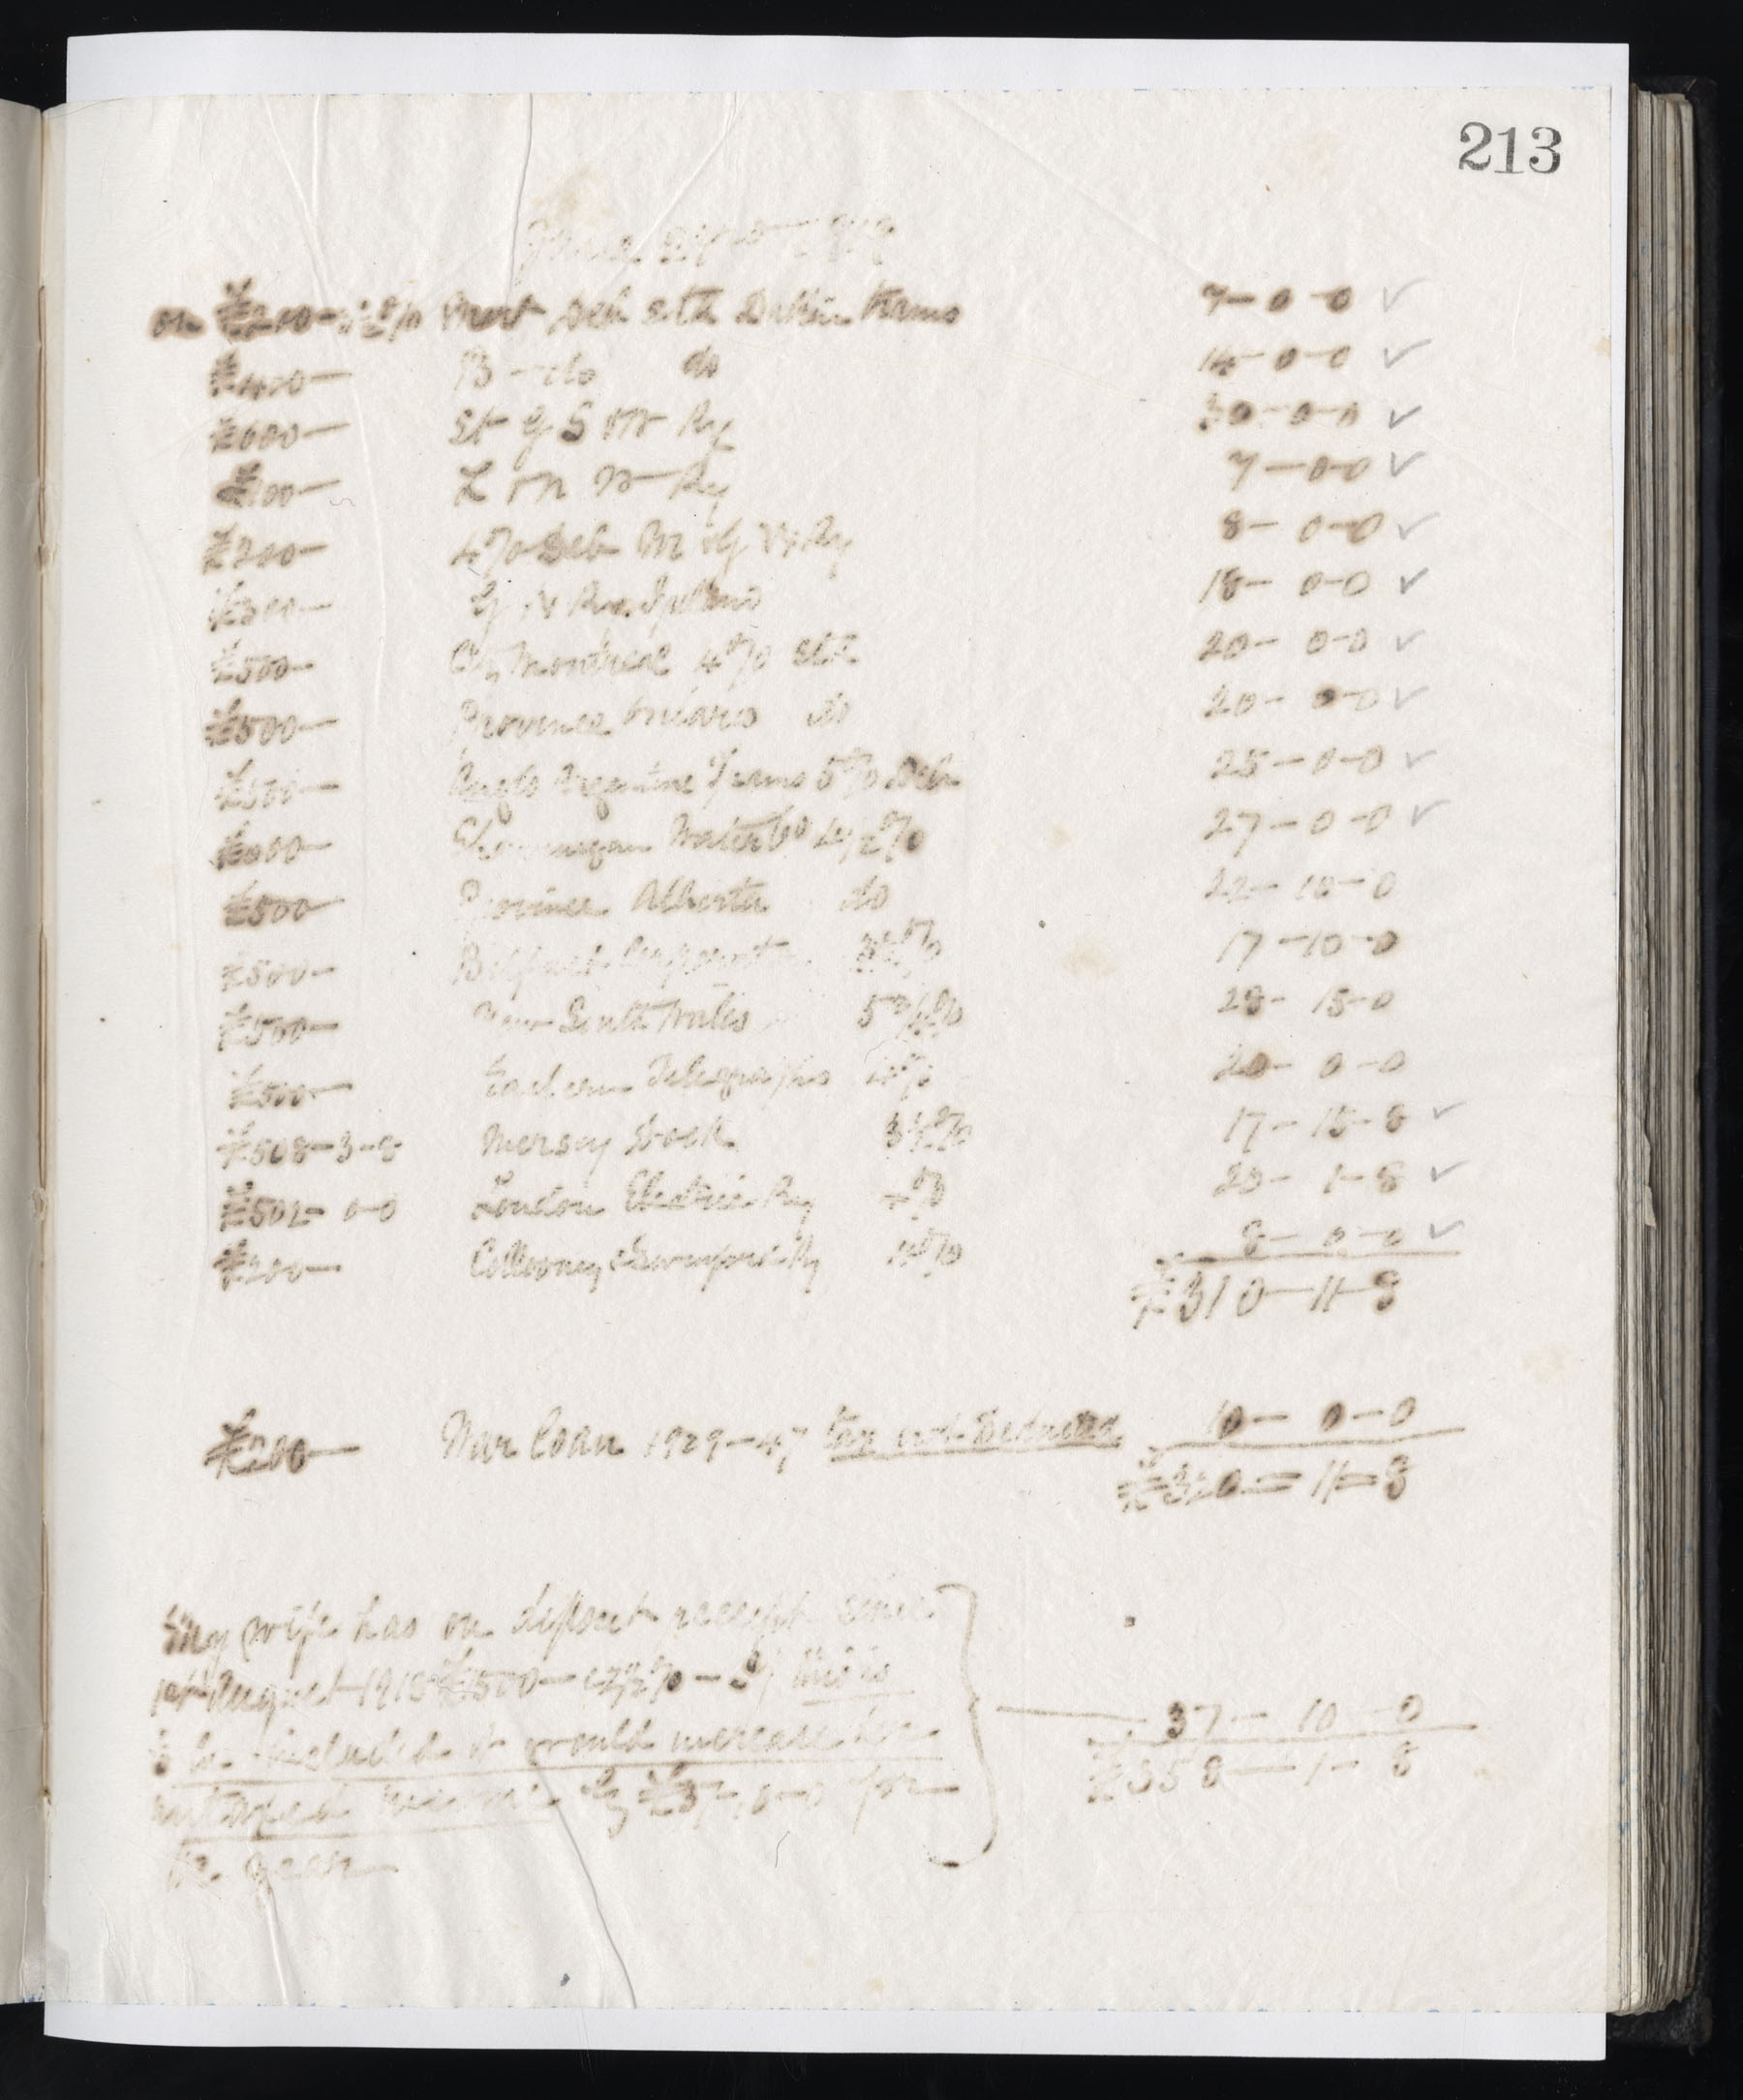 213
on £200 - 3½% Mort Deb Stk Dublin Trams 7-0-0
£400- B do do 14-0-0
£600- Gt S W Ry 30-0-0
£ 00- L N W Ry 7-0-0
£200- 4% Deb M G W Ry 8-0-0
G N Ry Ireland 18-0-0
£500- City Montreal 4% Stk 20-0-0
£500- Province Ontario do 20-0-0
£500- Anglo Argentine Trams 5% Deb 25-0-0
£600- Shawinigan Water Co 4½% 27-0-0
£500- Province Alberta do 22-10-0
£500- Belfast Corporation 3½% 17-10-0
£500- New South Wales 5¾% 28-15-0
£500- Eastern Telegraphs 4% 20-0-0
£508-3-8 Mersey Dock 3½% 17-15-8
£502-0-0 London Electric Ry 4% 20-1-8
£200- Collooney & Swinford Ry 4% 8-0-0
£310-11-8
£200- War Loan 1929-47 tax not deducted 10-0-0
£320=11=8
My wife has on deposit receipt since
1st August 1918 £500- if this is
to be included it would increase her
income by £37-10-0 for 37-10-0
£358-1-8
the year